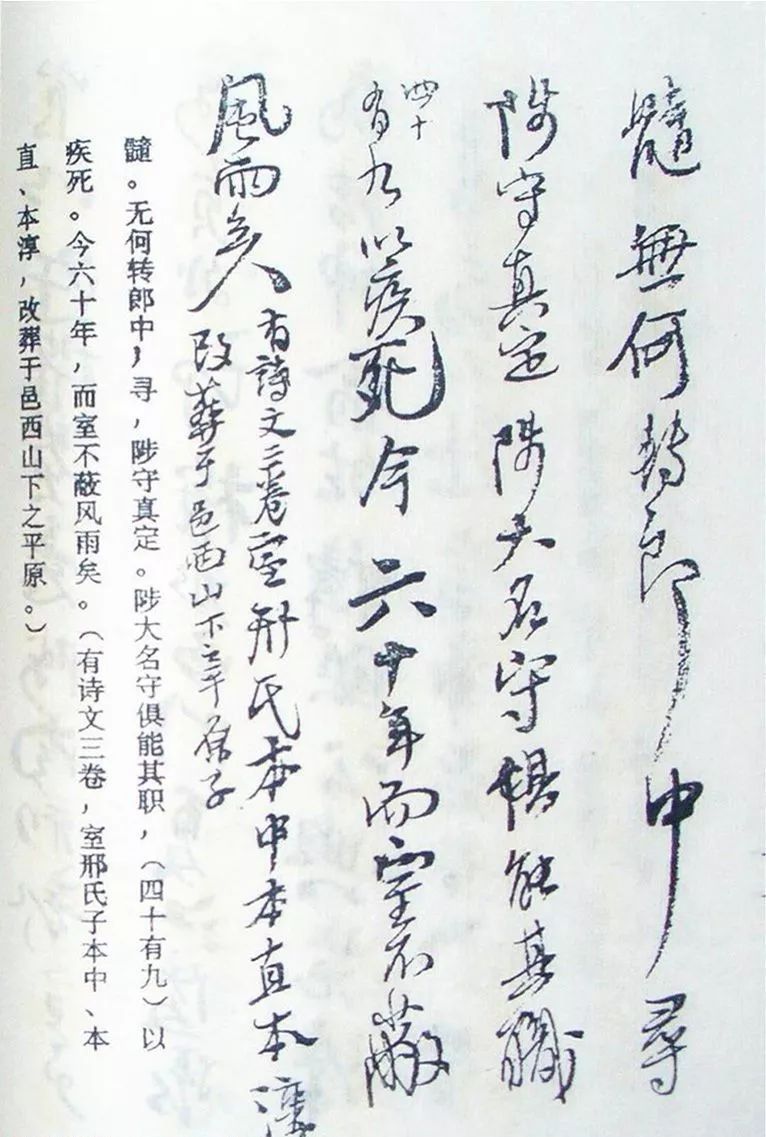 髓無何转郎中尋
陟守真定陟大名守俱能其職
四十
有九以疾死今六十年而室不蔽
風雨矣
有詩文三卷室邢氏本中本直本淳
改葬于邑西山下之平原子
髓。无何转郎中，寻，陟守真定。陟大名守俱能其职，（四十有九）以
疾死。今六十年，而室不蔽风雨矣。（有诗文三卷，室邢氏子本中、本
直、本淳，改葬于邑西山下之平原。）